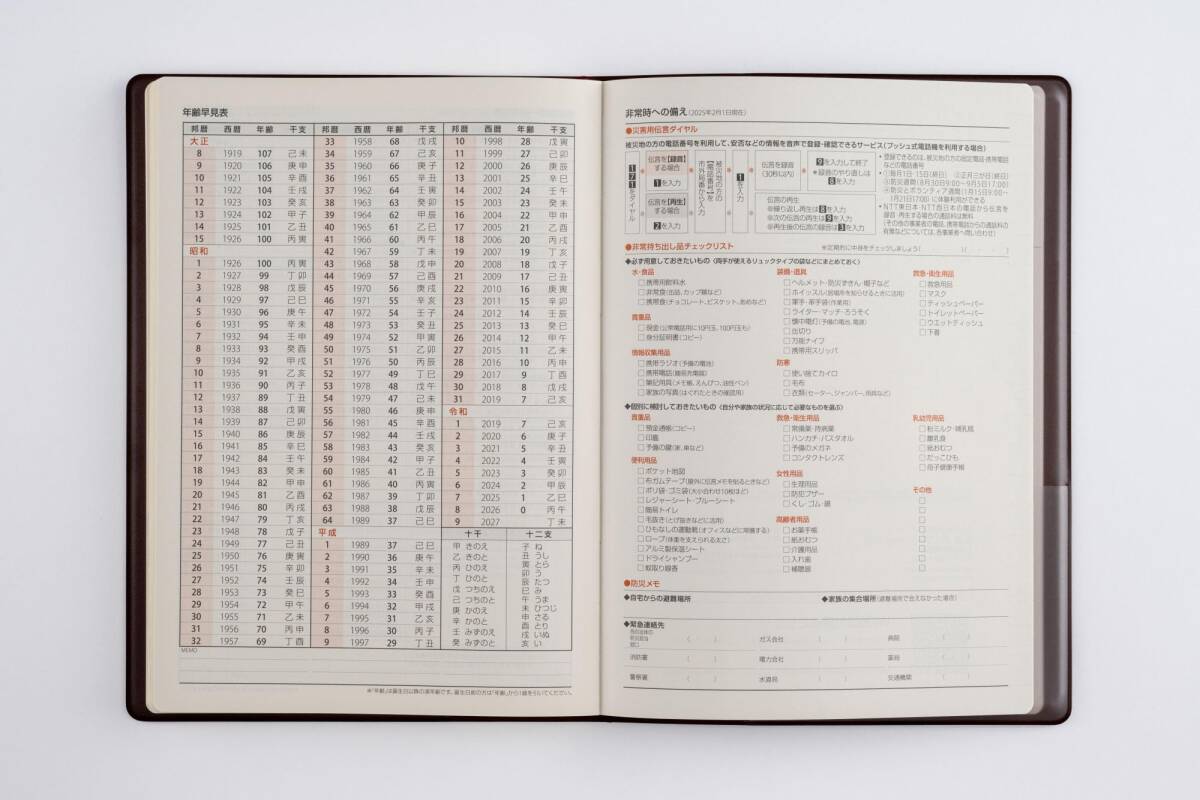 年齢早見表
邦暦 西暦 年齢 干支
大正
8 1919 107 己未
9 1920 106 庚申
10 1921 105 辛酉
11 1922 104 壬戌
12 1923 103 癸亥
13 1924 102 甲子
14 1925 101 乙丑
15 1926 100 丙寅
昭和
1 1926 100 丙寅
2 1927 99 丁卯
3 1928 98 戊辰
4 1929 97 己巳
5 1930 96 庚午
6 1931 95 辛未
7 1932 94 壬申
8 1933 93 癸酉
9 1934 92 甲戌
10 1935 91 乙亥
11 1936 90 丙子
12 1937 89 丁丑
13 1938 88 戊寅
14 1939 87 己卯
15 1940 86 庚辰
16 1941 85 辛巳
17 1942 84 壬午
18 1943 83 癸未
19 1944 82 甲申
20 1945 81 乙酉
21 1946 80 丙戌
22 1947 79 丁亥
23 1948 78 戊子
24 1949 77 己丑
25 1950 76 庚寅
26 1951 75 辛卯
27 1952 74 壬辰
28 1953 73 癸巳
29 1954 72 甲午
30 1955 71 乙未
31 1956 70 丙申
32 1957 69 丁酉
邦暦 西暦 年齢 干支
33 1958 68 戊戌
34 1959 67 己亥
35 1960 66 庚子
36 1961 65 辛丑
37 1962 64 壬寅
38 1963 63 癸卯
39 1964 62 甲辰
40 1965 61 乙巳
41 1966 60 丙午
42 1967 59 丁未
43 1968 58 戊申
44 1969 57 己酉
45 1970 56 庚戌
46 1971 55 辛亥
47 1972 54 壬子
48 1973 53 癸丑
49 1974 52 甲寅
50 1975 51 乙卯
51 1976 50 丙辰
52 1977 49 丁巳
53 1978 48 戊午
54 1979 47 己未
55 1980 46 庚申
56 1981 45 辛酉
57 1982 44 壬戌
58 1983 43 癸亥
59 1984 42 甲子
60 1985 41 乙丑
61 1986 40 丙寅
62 1987 39 丁卯
63 1988 38 戊辰
64 1989 37 己巳
平成
1 1989 37 己巳
2 1990 36 庚午
3 1991 35 辛未
4 1992 34 壬申
5 1993 33 癸酉
6 1994 32 甲戌
7 1995 31 乙亥
8 1996 30 丙子
9 1997 29 丁丑
邦暦 西暦 年齢 干支
10 1998 28 戊寅
11 1999 27 己卯
12 2000 26 庚辰
13 2001 25 辛巳
14 2002 24 壬午
15 2003 23 癸未
16 2004 22 甲申
17 2005 21 乙酉
18 2006 20 丙戌
19 2007 19 丁亥
20 2008 18 戊子
21 2009 17 己丑
22 2010 16 庚寅
23 2011 15 辛卯
24 2012 14 壬辰
25 2013 13 癸巳
26 2014 12 甲午
27 2015 11 乙未
28 2016 10 丙申
29 2017 9 丁酉
30 2018 8 戊戌
31 2019 7 己亥
令和
1 2019 7 己亥
2 2020 6 庚子
3 2021 5 辛丑
4 2022 4 壬寅
5 2023 3 癸卯
6 2024 2 甲辰
7 2025 1 乙巳
8 2026 0 丙午
9 2027 丁未
十干
甲 きのえ
乙 きのと
丙 ひのえ
丁 ひのと
戊 つちのえ
己 つちのと
庚 かのえ
辛 かのと
壬 みずのえ
癸 みずのと
十二支
子 ね
丑 うし
寅 とら
卯 う
辰 たつ
巳 み
午 うま
未 ひつじ
申 さる
酉 とり
戌 いぬ
亥 い
MEMO
※「年齢」は誕生日以降の満年齢です。誕生日前の方は「年齢」から1歳を引いてください。
非常時への備え(2025年2月1日現在)
●災害用伝言ダイヤル
被災地の方の電話番号を利用して、安否などの情報を音声で登録・確認できるサービス(プッシュ式電話機を利用する場合)
171をダイヤル
伝言を【録音】
する場合
1を入力
伝言を【再生】
する場合
2を入力
被災地の方の
【電話番号】を
市外局番から入力
1を入力
伝言を録音
(30秒以内)
9を入力して終了
※録音のやり直しは
8を入力
伝言の再生
※繰り返し再生は8を入力
※次の伝言の再生は9を入力
※再生後の伝言の録音は3を入力
・登録できるのは、被災地の方の固定電話・携帯電話
などの電話番号
・①毎月1日・15日(終日) ②正月三が日(終日)
③防災週間(8月30日9:00～9月5日17:00)
④防災とボランティア週間(1月15日9:00～
1月21日17:00)に体験利用ができる
・NTT東日本・NTT西日本の電話から伝言を
録音・再生する場合の通話料は無料
(その他の事業者の電話、携帯電話からの通話料の
有無などについては、各事業者へ問い合わせ)
●非常持ち出し品チェックリスト
※定期的に中身をチェックしましょう( )( )
◆必ず用意しておきたいもの(両手が使えるリュックタイプの袋などにまとめておく)
水・食品
□携帯用飲料水
□非常食(缶詰、カップ麺など)
□携帯食(チョコレート、ビスケット、あめなど)
貴重品
□現金(公衆電話用に10円玉、100円玉も)
□身分証明書(コピー)
情報収集用品
□携帯ラジオ(予備の電池)
□携帯電話(簡易充電器)
□筆記用具(メモ帳、えんぴつ、油性ペン)
□家族の写真(はぐれたときの確認用)
装備・道具
□ヘルメット・防災ずきん・帽子など
□ホイッスル(居場所を知らせるときに活用)
□軍手・革手袋(作業用)
□ライター・マッチ・ろうそく
□懐中電灯(予備の電池、電球)
□缶切り
□万能ナイフ
□携帯用スリッパ
防寒
□使い捨てカイロ
□毛布
□衣類(セーター、ジャンパー、雨具など)
救急・衛生用品
□救急用品
□マスク
□ティッシュペーパー
□トイレットペーパー
□ウエットティッシュ
□下着
◆個別に検討しておきたいもの(自分や家族の状況に応じて必要なものを選ぶ)
貴重品
□預金通帳(コピー)
□印鑑
□予備の鍵(家、車など)
便利用品
□ポケット地図
□布ガムテープ(屋外に伝言メモを貼るときなど)
□ポリ袋・ゴミ袋(大小合わせ10枚ほど)
□レジャーシート・ブルーシート
□簡易トイレ
□毛抜き(とげ抜きなどに活用)
□ひもなしの運動靴(オフィスなどに常備する)
□ロープ(体重を支えられる太さ)
□アルミ製保温シート
□ドライシャンプー
□蚊取り線香
救急・衛生用品
□常備薬・持病薬
□ハンカチ・バスタオル
□予備のメガネ
□コンタクトレンズ
女性用品
□生理用品
□防犯ブザー
□くし・ゴム・鏡
高齢者用品
□お薬手帳
□紙おむつ
□介護用品
□入れ歯
□補聴器
乳幼児用品
□粉ミルク・哺乳瓶
□離乳食
□紙おむつ
□だっこひも
□母子健康手帳
その他
□
□
□
□
□
□
□
□
●防災メモ
◆自宅からの避難場所
◆家族の集合場所(避難場所で会えなかった場合)
◆緊急連絡先
( ) ガス会社 ( ) 病院 ( )
消防署 ( ) 電力会社 ( ) 薬局 ( )
警察署 ( ) 水道局 ( ) 交通機関 ( )